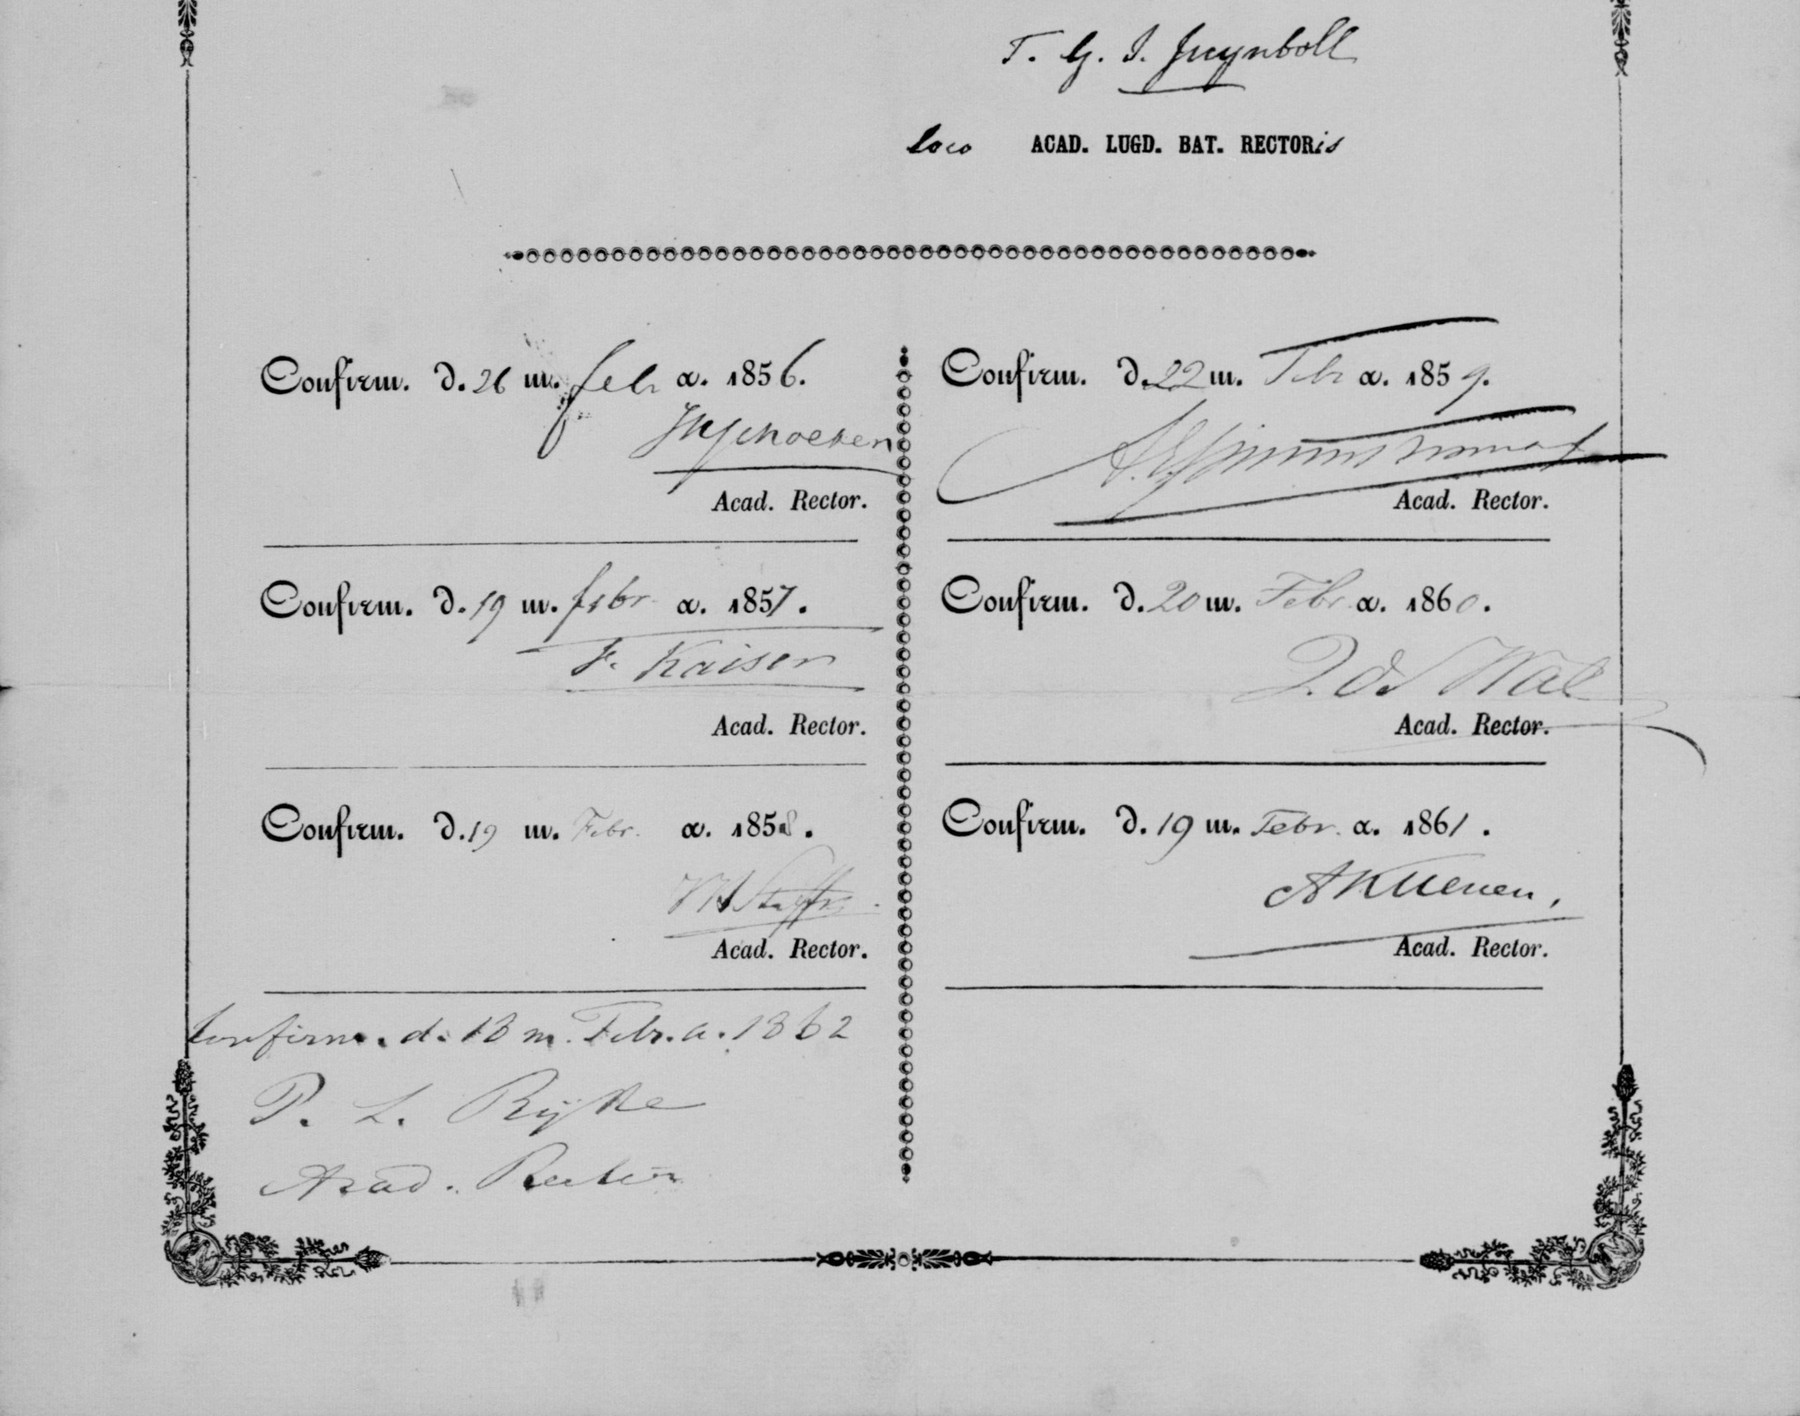 T. G. J. Juynboll
loco ACAD. LUGD. BAT. RECTORis
Confirm. d. 26 m. febr a. 1856.
Acad. Rector.
Confirm. d. 19 m. febr a. 1857.
F. Kaiser
Acad. Rector.
Confirm. d. 19 m. Febr. a. 1858.
Acad. Rector.
Confirm. d. 22 m. Febr a. 1859.
Acad. Rector.
Confirm. d. 20 m. Febr. a. 1860.
J. de Wal
Acad. Rector.
Confirm. d. 19 m. Febr. a. 1861.
A Kuenen,
Acad. Rector.
Confirm. d. 18 m. Febr. a. 1862
P. L. Rijke
Acad. Rector